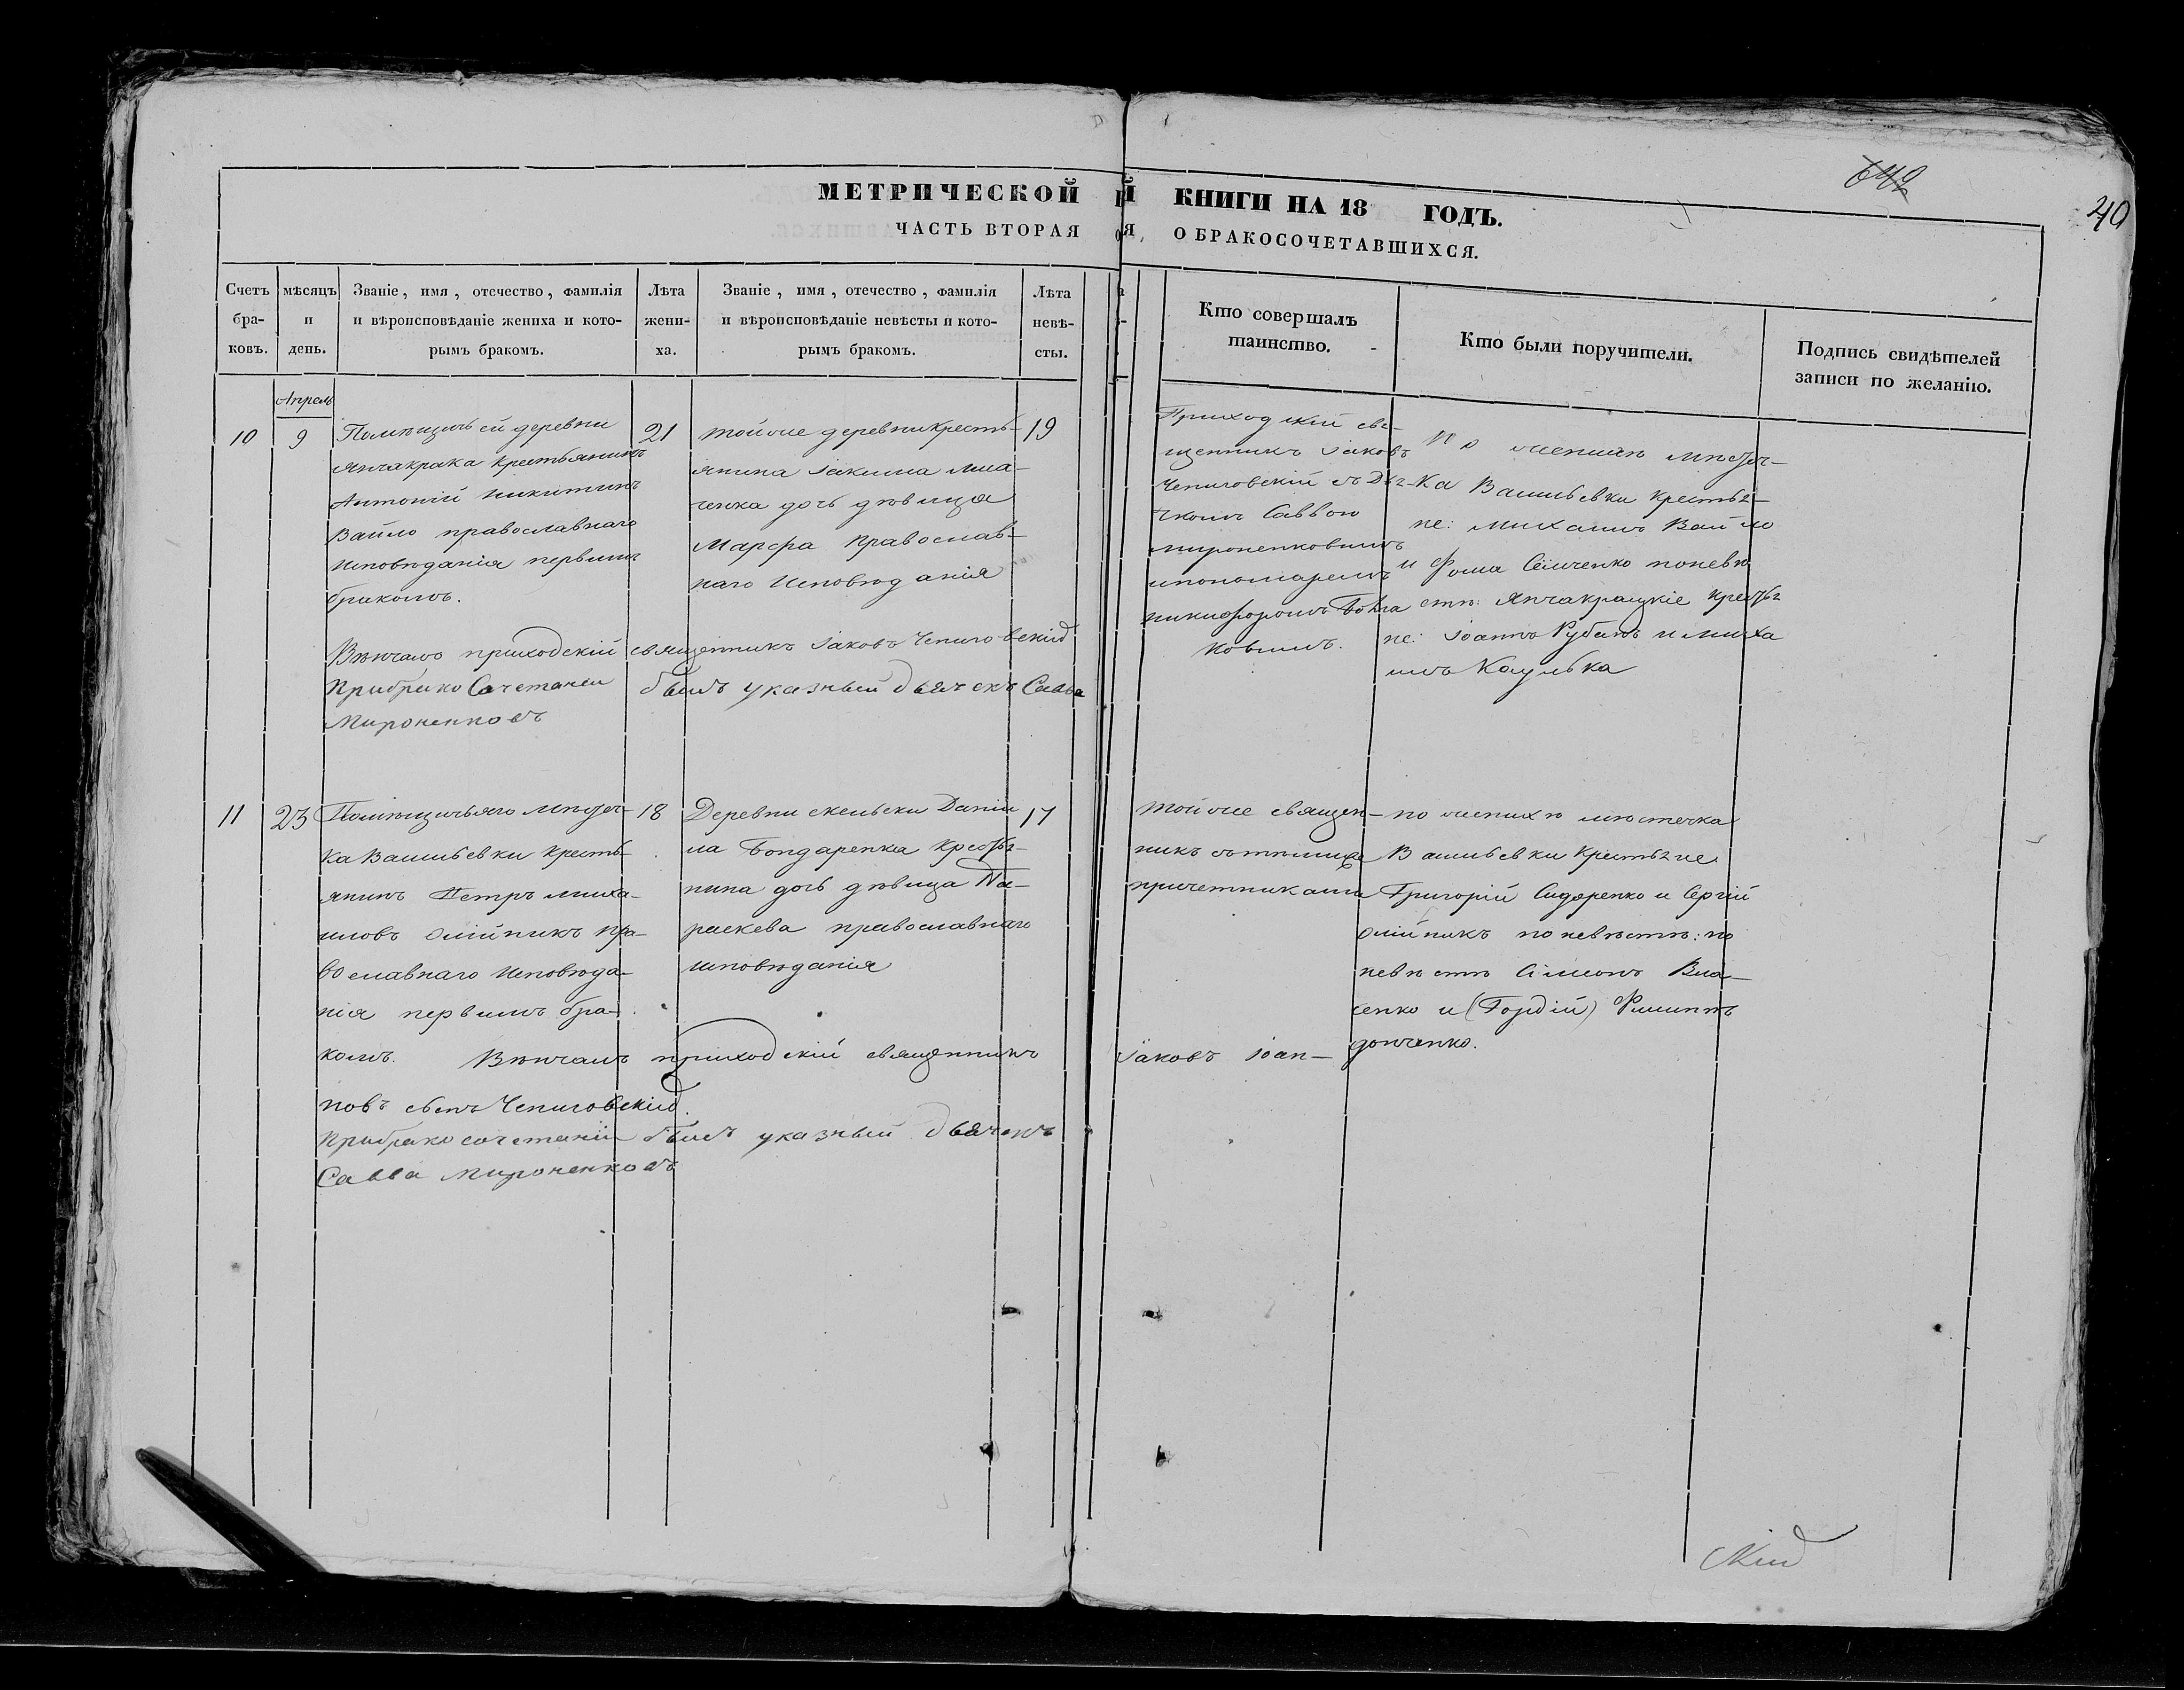 642
40
МЕТРИЧЕСКОЙ КНИГИ НА 18 ГОДЪ.
ЧАСТЬ ВТОРАЯ О БРАКОСОЧЕТАВШИХСЯ.
Счетъ бра-ковъ.
мѣсяцъ и день.
Званіе, имя, отечество, фамилія
и вѣроисповѣданіе жениха и кото-
рымъ бракомъ.
Лѣта жени-ха.
Званіе, имя, отечество, фамилія
и вѣроисповѣданіе невѣсты и кото-
рымъ бракомъ.
Лѣта невѣ-сты.
Кто совершалъ
таинство.
Кто были поручители.
Подпись свидѣтелей
записи по желанію.
Апрель
10
9
Помѣщичьей деревни
Янчакрака крестьянинъ
Антоній Никитинъ
Вайло православнаго
исповѣданія первымъ
бракомъ.
21
тойже деревни кресть-
янина Іакима
ченка дочь дѣвица
Марфа православ-
наго исповѣданія
19
Приходскій свя-
щенникъ Іаковъ
Чепиговскій съ Дья-
чкомъ Саввою
Мироненковымъ
и пономаремъ
Никифоромъ
ковымъ.
По женихѣ мѣстеч-
ка Васильевки крестья-
не: Михаилъ Вайло
и Фома Семченко по невѣ
стѣ: Янчакрацкіе крестья
не: Іоаннъ Рубанъ и Миха
илъ Каулька
Вѣнчалъ приходскій священникъ Іаковъ Чепиговскій
При брако Сочетаніи былъ указный дьячекъ Савва
Мироненковъ
11
23
Помѣщичьяго мѣстеч-
ка Васильевки кресть-
янинъ Петръ Миха-
иловъ Олійникъ пра-
вославнаго исповѣда-
нія первымъ бра-
комъ.
18
Деревни Скельски Даніи
ла Бондаренка крестья-
нина дочь дѣвица Па-
раскева православнаго
исповѣданія
17
тойже священ-
никъ съ тѣмиже
причетниками
по женихѣ мѣстечка
Васильевки крестьяне
Григорій Сидоренко и Сергій
Олійникъ по невѣстѣ: по
невѣстѣ Симеонъ Вла-
сенко и (Гордій) Филиппъ
донченко.
Вѣнчалъ приходскій священникъ Іаковъ Іоан-
новъ сынъ Чепиговскій.
При брако сочетаніи былъ указный дьячекъ
Савва Мироненковъ
скій